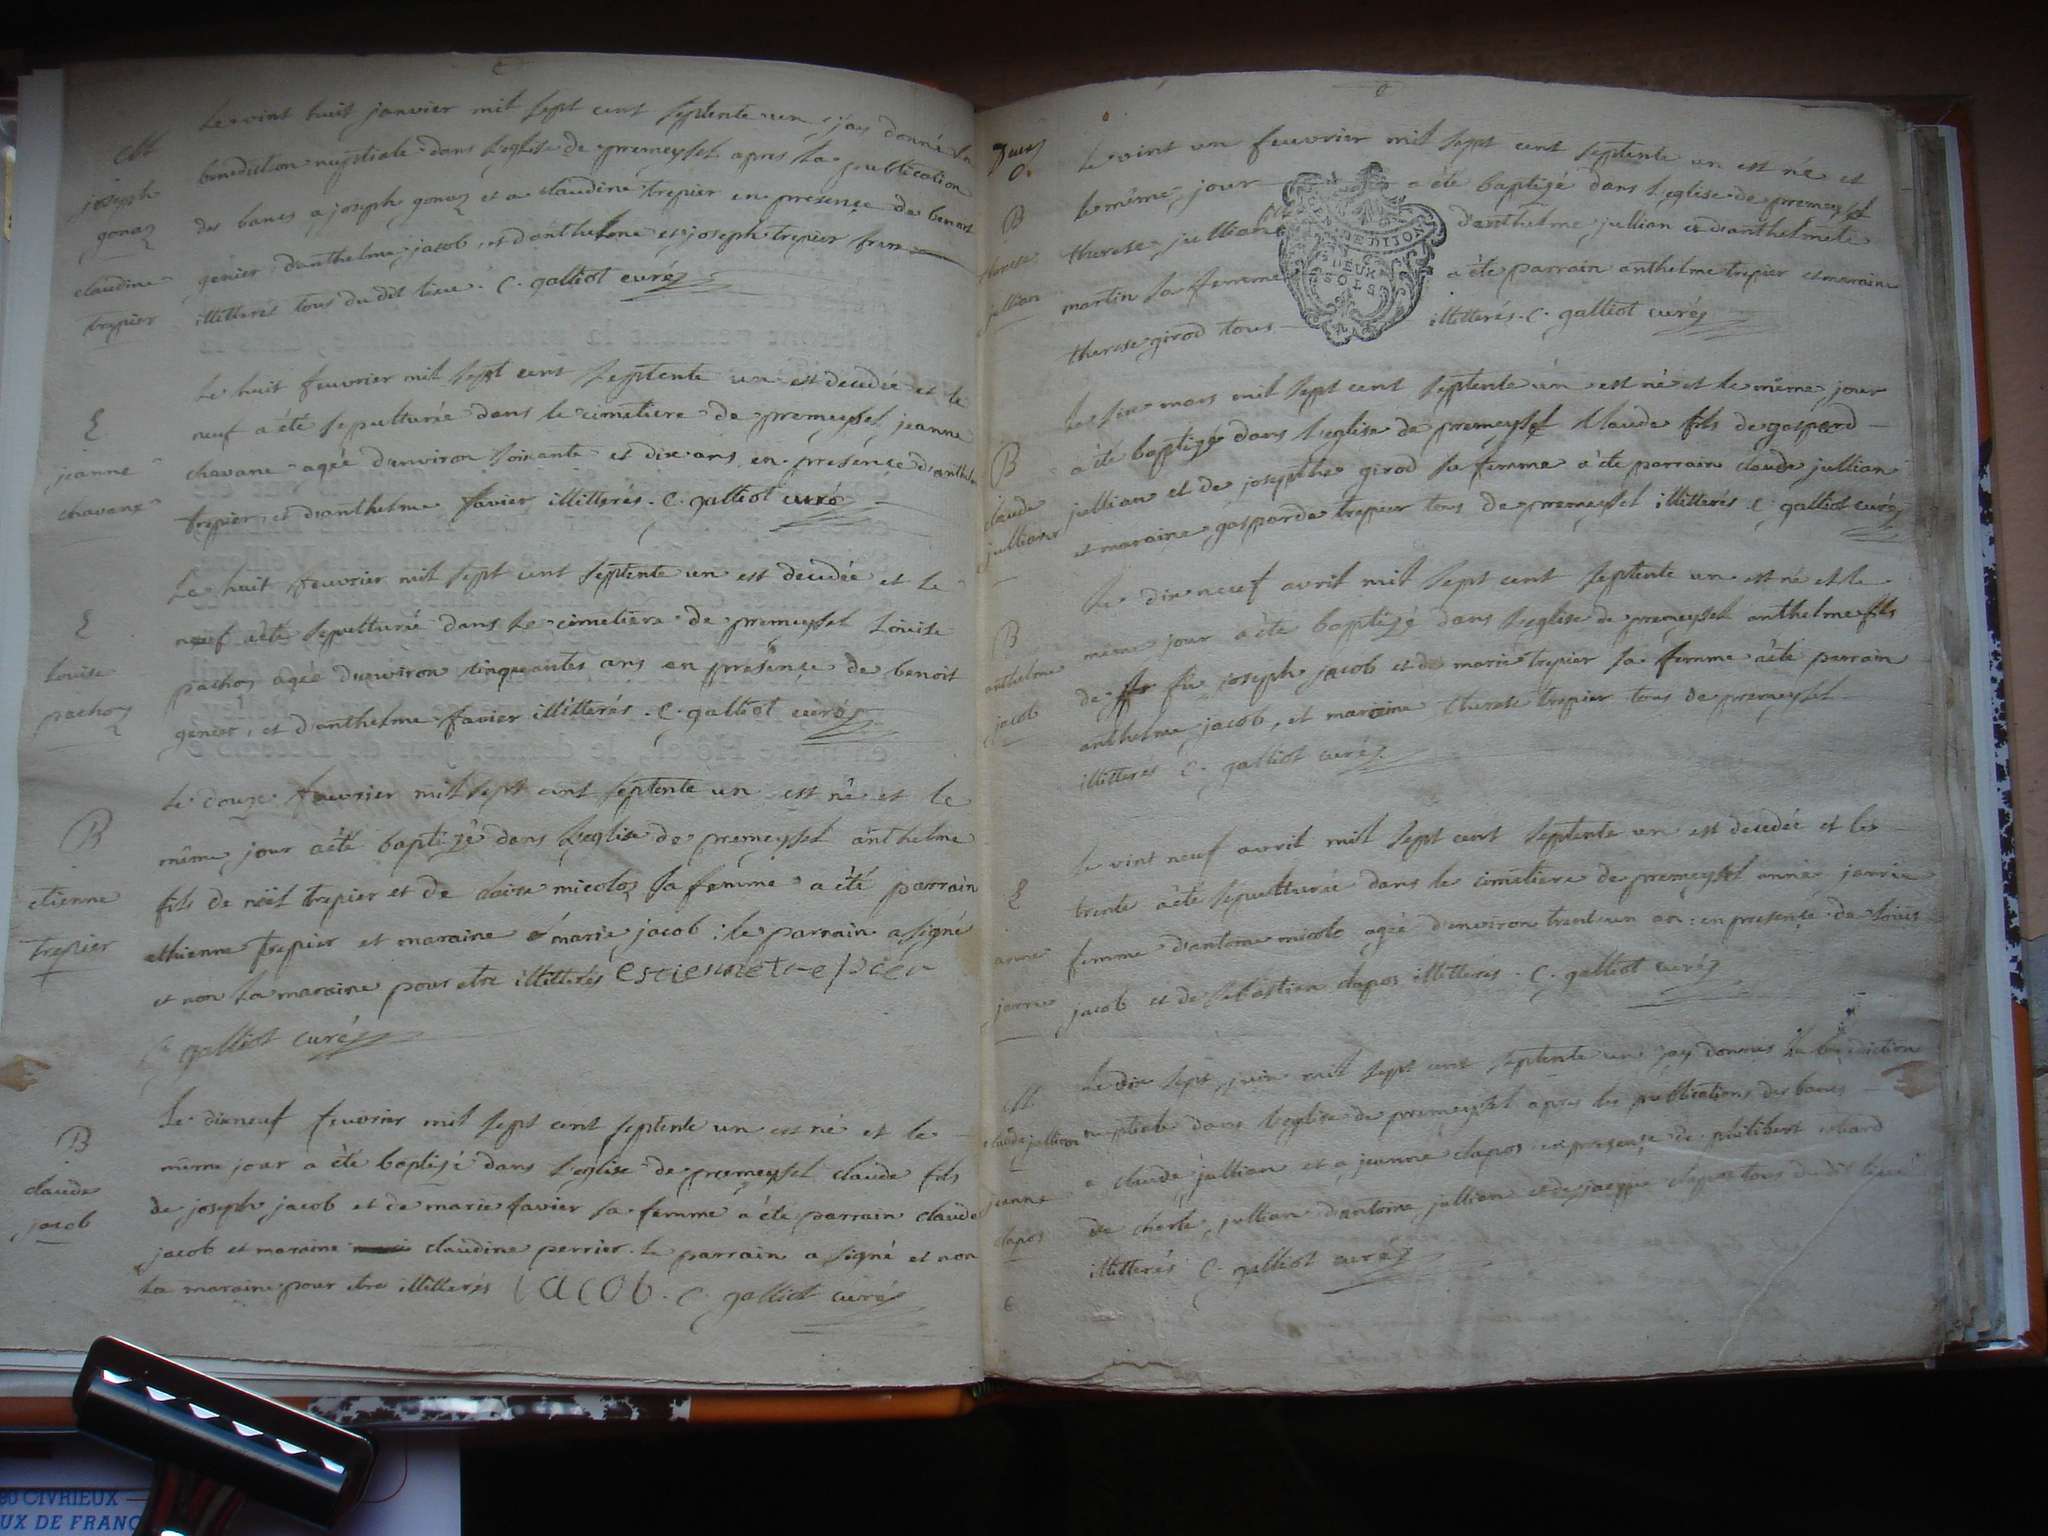 M
joseph
gonaz
claudine
trepier
Le vint huit janvier mil sept cent septente un j'ay donné la
benediction nuptiale dans l'eglise de premeyssel apres la publication
des bancs a joseph gonaz et a claudine trepier en presence de benoit
genier d'anthelme jacob, et d'anthelme et joseph trepier
illitterés tous du dit lieu. C. galliot curé
S
jeanne
chavane
Le huit feuvrier mil sept cent septente un est decedée et le
neuf a été sepulturée dans le cimetiere de premeyssel jeanne
chavane agée d'environ soixante et dix ans en presence d'anthelme
trepier, et d'anthelme favier illitterés. C. galliot curé
S
Louise
pachoz
Le huit feuvrier mil sept cent septente un est decedée et le
neuf a été sepulturée dans le cimetiere de premeyssel Louise
pachoz agée d'environ cinquantes ans en presence de benoit
genier, et d'anthelme favier illitterés. C. galliot curé
B
etienne
trepier
Le douze feuvrier mil sept cent septente un est né et le
même jour a été baptizé dans l'eglise de premeyssel anthelme
fils de noël trepier et de claise micoloz sa femme a été parrain
ethienne trepier et maraine marie jacob : le parrain a signé
et non la maraine pour etre illitterés estiennetrepier
C. galliot curé
B
claude
jacob
Le dixneuf feuvrier mil sept cent septente un est né et le
même jour a été baptizé dans l'eglise de premeyssel claude fils
de joseph jacob et de marie favier sa femme a été parrain claude
jacob et maraine claudine perrier. le parrain a signé et non
la maraine pour etre illitterés iacob. C. galliot curé
B
therese
jullian
Le vint un feuvrier mil sept cent septente un est né et
le même jour a été baptizé dans l'eglise de premeyssel
therese jullian fille d'anthelme jullian et d'anthelmete
martin sa femme a été parrain anthelme trepier et maraine
therese girod tous illitterés. C. galliot curé
GEN DE DIJON
DEUX
SOLS
B
claude
jullian
Le six mars mil sept cent septente un est né et le même jour
a été baptizé dans l'eglise de premeyssel Claude fils de gaspard
jullian et de josephte girod sa femme a été parrain claude jullian
et maraine gasparde trepier tous de premeyssel illitterés C. galliot curé
B
anthelme
jacob
Le dix neuf avril mil sept cent septente un est né et le
même jour a été baptizé dans l'eglise de premeyssel anthelme fils
de fu joseph jacob et de marie trepier sa femme a été parrain
anthelme jacob, et maraine therese trepier tous de premeyssel
illitterés C. galliot curé
S
anne
jarrie
Le vint neuf avril mil sept cent septente un est decedée et le
trente a été sepulturée dans le cimetiere de premeyssel anne jarrie
femme d'antoine micolo agée d'environ trent un an : en presence de Louis
jacob et de sebastien dapos illitterés. C. galliot curé
M
claude jullian
jeanne
dapos
Le dix sept juin mil sept cent septente un j'ay donnes la benediction
nuptiale dans l'eglise de premeyssel apres les publications des bancs
a claude jullian et a jeanne dapos en presence de philibert
de charle jullian d'antoine jullian et de jacque dapos tous du dit lieu
illitterés C. galliot curé
6
80 CIVRIEUX
UX DE FRANC